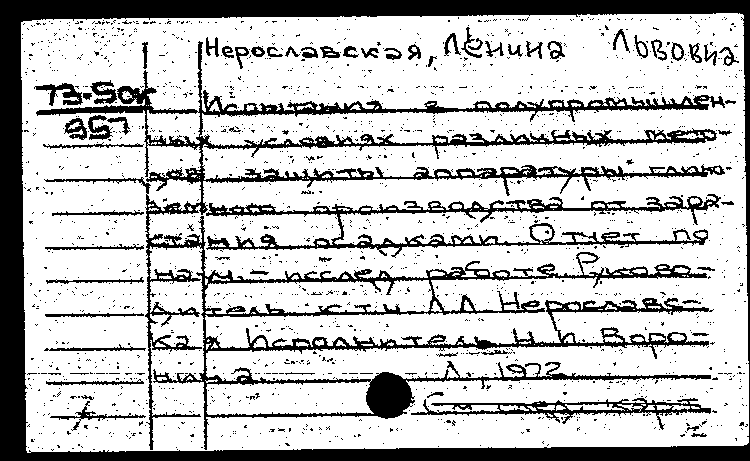 Нерославская, Ленина Львовна
73-50к
957
Испытания в полупромышлен-
ных условиях различных мето-
дов защиты аппаратуры глино-
земного производства от зара-
стания осадками. Отчет по
науч.-исслед. работе. Руково-
дитель к.т.н. Л.Л. Нерославс-
кая. Исполнитель Н.И. Воро-
нина. Л., 1972.
См. след. карт.